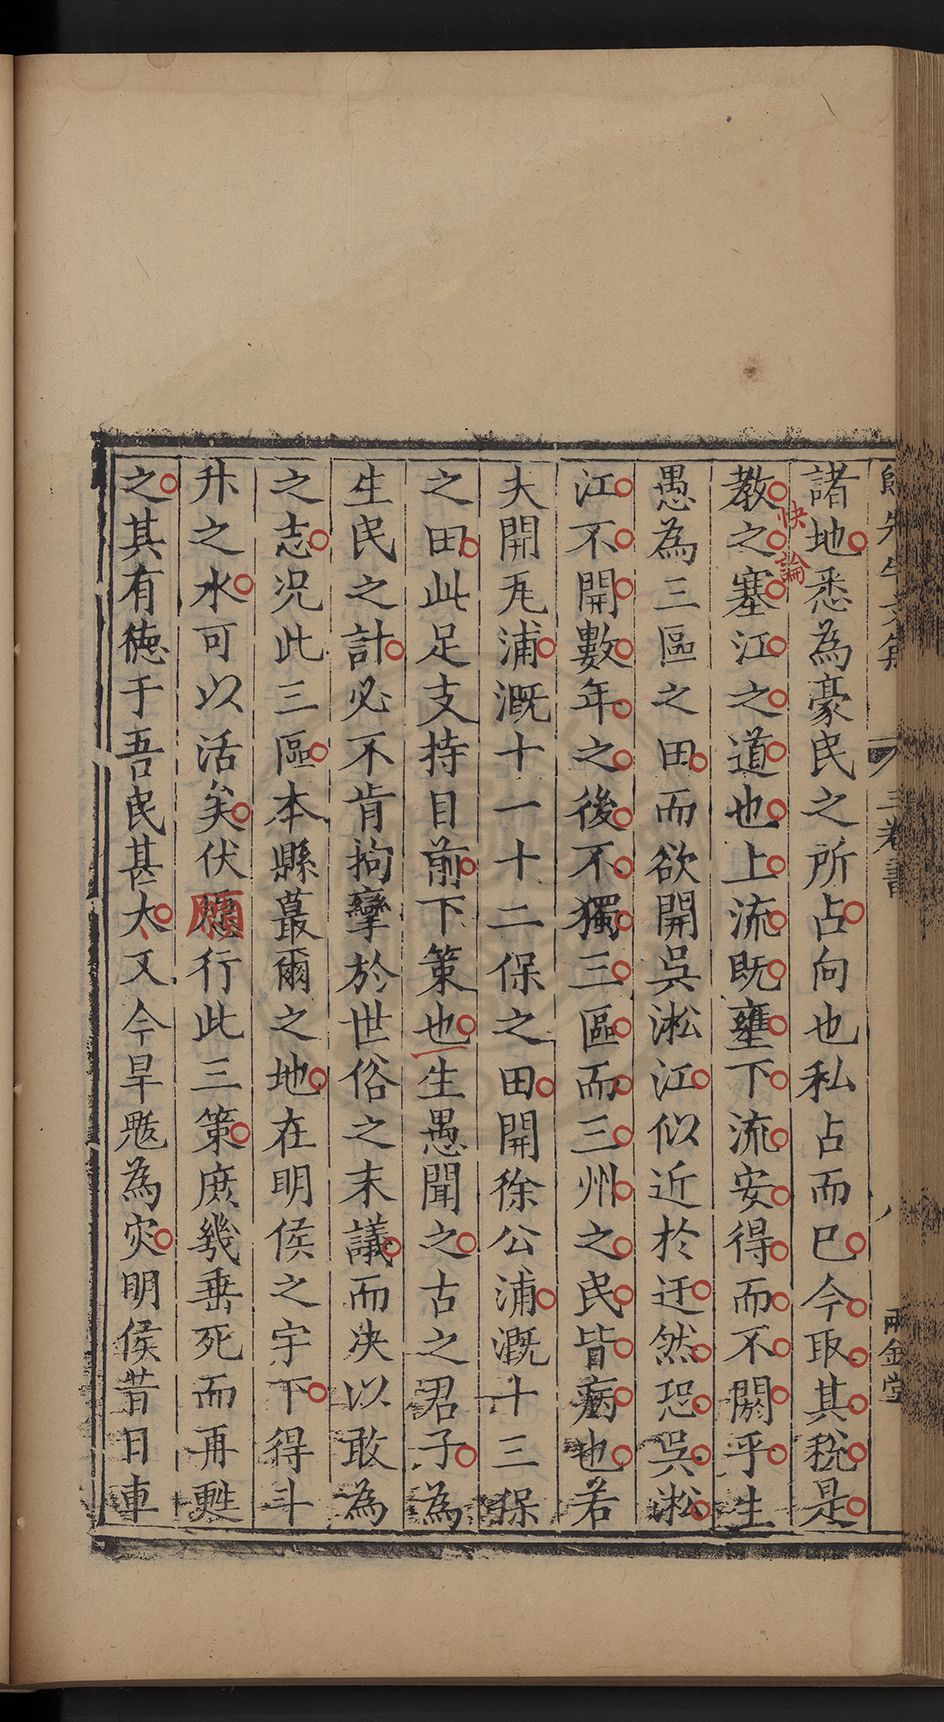 諸地悉為豪民之所占向也私占而巳今取其稅是
快論
教之塞江之道也上流既壅下流安得而不閼乎生
愚為三區之田而欲開吳淞江似近於迂然恐吳淞
江不開數年之後不獨三區而三州之民皆病也若
夫開瓦浦溉十一十二保之田開徐公浦溉十三保
之田此足支持目前下策也生愚聞之古之君子為
生民之計必不肯拘攣於世俗之末議而決以敢為
之志况此三區本縣蕞爾之地在明侯之宇下得斗
升之水可以活矣伏願行此三策庶幾垂死而再甦
之其有德于吾民甚大又今旱魃為灾明侯昔日車
三卷書
八
兩金堂